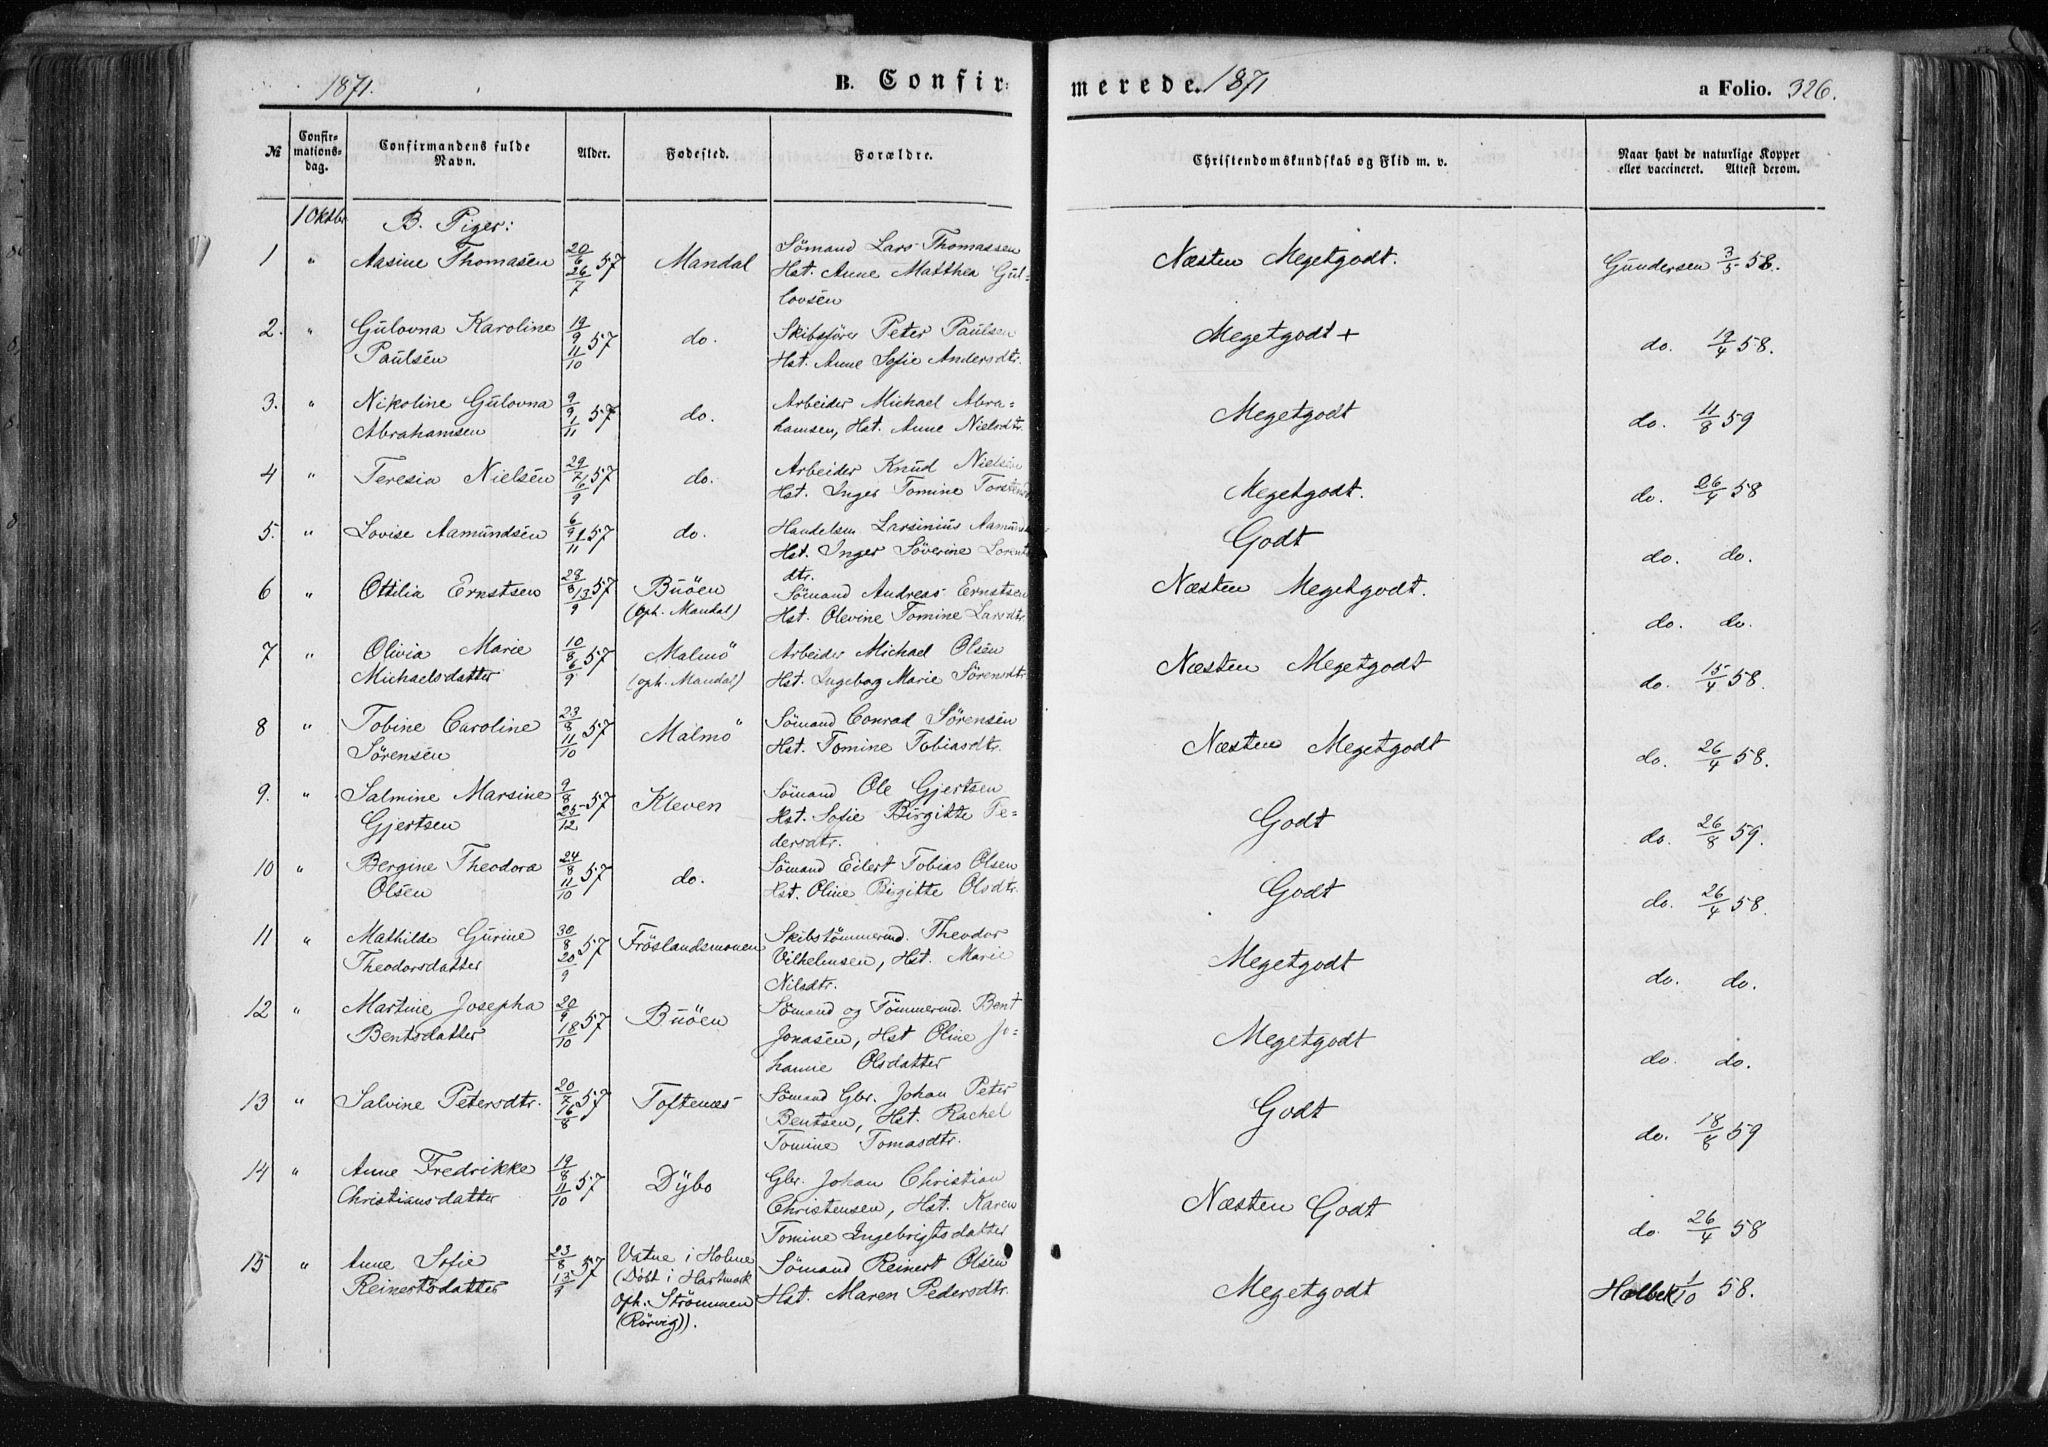 1871.
B. Confir:
merede. 1871
a Folio. 326.
№
Confir=
mations=
dag.
Confirmandens fulde
Navn.
Alder.
Fodested.
Forældre.
Christendomskundskab og Flid m. v.
Naar havt de naturlige Kopper
eller vaccineret. Attest derom.
1 Oktbr B. Piger:
1 " Aasine Thomasen 20/6 57 26/7 Mandal Sömand Lars Thomassen
Hst. Anne Matthea Gul-
lovsen
Næsten Megetgodt. Gundersen 3/5 58.
2. " Gulovna Karoline
Paulsen
19/9 57 11/10 do. Skibsförer Peter Paulsen
Hst. Anne Sofie Andersdtr.
Megetgodt + do. 19/4 58.
3. " Nikoline Gulovna
Abrahamsen
9/9 57 1/11 do. Arbeider Michael Abra-
hamsen, Hst. Anne Nielsdtr.
Megetgodt do. 11/8 59
4 " Teresia Nielsen 29/7 57 6/9 do. Arbeider Knud Nielsen
Hst. Inger Tomine
Megetgodt. do. 26/4 58
5. " Lovise Aamundsen 6/9 57 1/11 do. Handelsm Larsinius
Hst. Inger Söverine
dtr.
Godt do. do.
6 " Ottilia Ernstsen 28/8 57 13/9 Buöen
(Oph. Mandal)
Sömand Andreas Ernstsen
Hst. Olevine Tomine Larsdtr.
Næsten Megetgodt. do. do.
7 " Olivia Marie
Michaelsdatter
10/8 57 6/9 Malmö
(oph. Mandal)
Arbeider Michael Olsen
Hst. Ingebog Marie Sörensdtr.
Næsten Megetgodt do. 15/4 58.
8 " Tobine Caroline
Sörensen
23/8 57 11/10 Malmö Sömand Conrad Sörensen
Hst. Tomine Tobiasdtr.
Næsten Megetgodt do. 26/4 58.
9. " Salmine Marsine
Gjertsen
9/8 57 25/12 Kleven Sömand Ole Gjertsen
Hst. Sofie Birgitte Pe-
dersdtr.
Godt do. 26/8 59.
10 " Bergine Theodora
Olsen
24/8 57 11/10 do. Sömand Eilert Tobias Olsen
Hst. Oline Birgitte Olsdtr.
Godt do. 26/4 58.
11 " Mathilde Gurine
Theodorsdatter
30/8 57 20/9 Fröslandsmonen Skibstömmermd. Theodor
Vilhelmsen, Hst. Marie
Nilsdtr.
Megetgodt do. do.
12 " Martine Josepha
Bentsdatter
20/9 57 18/10 Buöen Sömand og Tömmermd. Bent
Jonasen, Hst Oline Jo-
hanne Olsdatter
Megetgodt do. do.
13 " Salvine Petersdtr. 20/7 57 16/8 Toftenæs Sömand Gbr. Johan Peter
Bentsen, Hst. Rachel
Tomine Tomasdtr.
Godt do. 18/8 59
14 " Anne Fredrikke
Christiansdatter
19/8 57 11/10 Dÿbo Gbr. Johan Christian
Christensen, Hst. Karen
Tomine Ingebrigtsdatter
Næsten Godt do. 26/4 58
15 " Anne Sofie
Reinertsdatter
23/8 57 13/9 Vatne i Holme
(Döbt i Hartmark
Oph. Strömmen
(Rörvig)).
Sömand Reinert Olsen
Hst. Maren Pedersdtr.
Megetgodt Holbek 1/10 58.